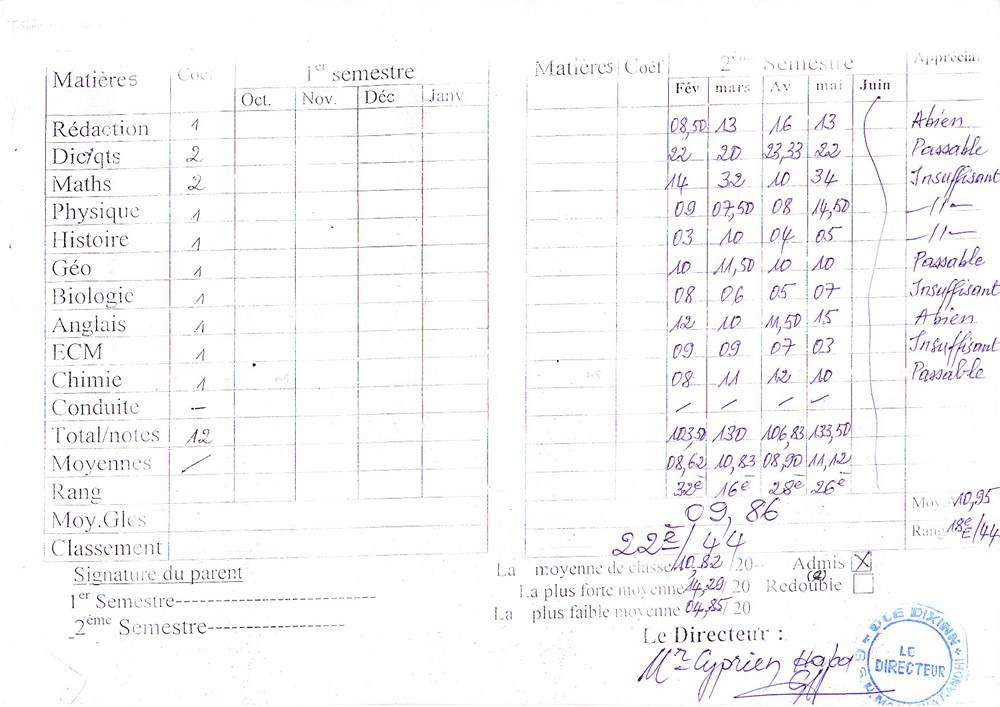 Matières Coef 1er semestre Matières Coéf 2ème Semestre Apprécia.
Oct. Nov. Déc Janv Fév mars Av mai Juin
Rédaction 1 08,50 13 16 13 Abien
Dic/qts 2 22 20 23,33 22 Passable
Maths 2 14 32 10 34 Insuffisant
Physique 1 09 07,50 08 14,50 —//—
Histoire 1 03 10 04 05 —//—
Géo 1 10 11,50 10 10 Passable
Biologie 1 08 06 05 07 Insuffisant
Anglais 1 12 10 11,50 15 Abien
ECM 1 09 09 07 03 Insuffisant
Chimie 1 08 11 12 10 Passable
Conduite — / / / /
Total/notes 12 103,50 130 106,83 133,50
Moyennes / 08,62 10,83 08,90 11,12
Rang 32è 16è 28è 26è
Moy.Gles 09,86 Moy.A 10,95
Classement 22è/44 Rang 18è/44
Signature du parent La moyenne de classe 10,82 /20-- Admis X
1er Semestre-------------------------- La plus forte moyenne 14,29/ 20 Redouble (e)
2ème Semestre------------------ La plus faible moyenne 04,85/ 20
Le Directeur :
Mr Cyprien Haba
LE DIRECTEUR